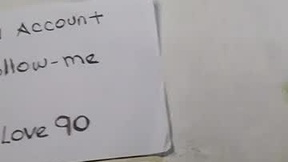 Account
ollow-me
Love 90